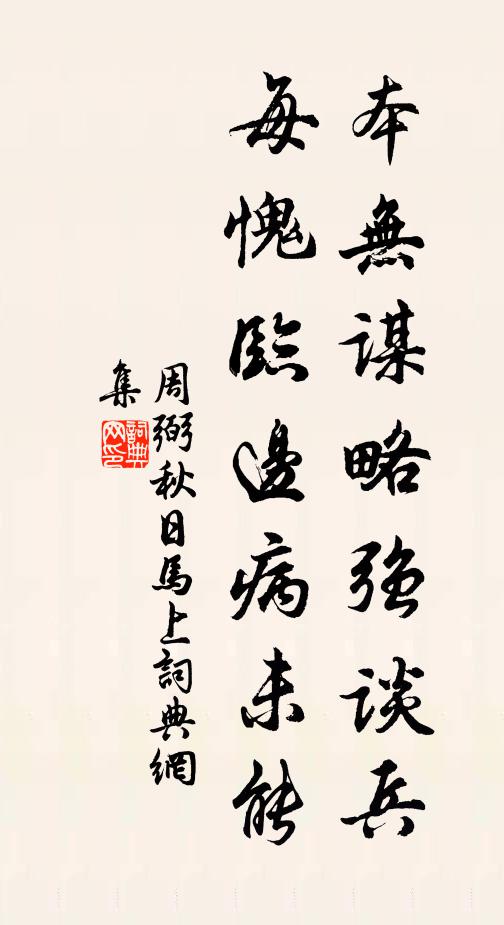 本無謀略強談兵
每愧臨邊病未能
周弼秋日馬上詞典網
集
詞典网印